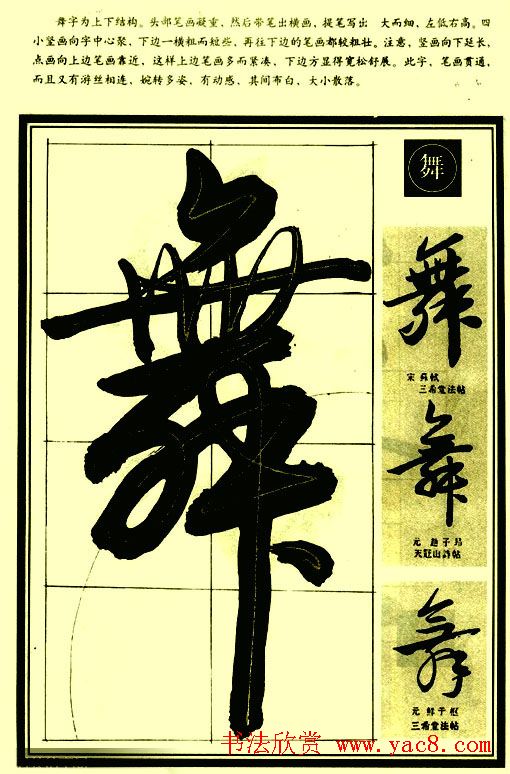 舞字为上下结构。头部笔画凝重，然后带笔出横画，提笔写出 大而细，左低右高。四
小竖画向字中心聚，下边一横粗而短些，再往下边的笔画都较粗壮。注意，竖画向下延长，
点画向上边笔画靠近，这样上边笔画多而紧凑，下边方显得宽松舒展。此字，笔画贯通，
而且又有游丝相连，婉转多姿，有动感，其间布白，大小散落。
舞
舞
舞
宋 苏轼
三希堂法帖
舞
元 赵子昂
天冠山诗帖
舞
元 鲜于枢
三希堂法帖
书法欣赏 www.yac8.com